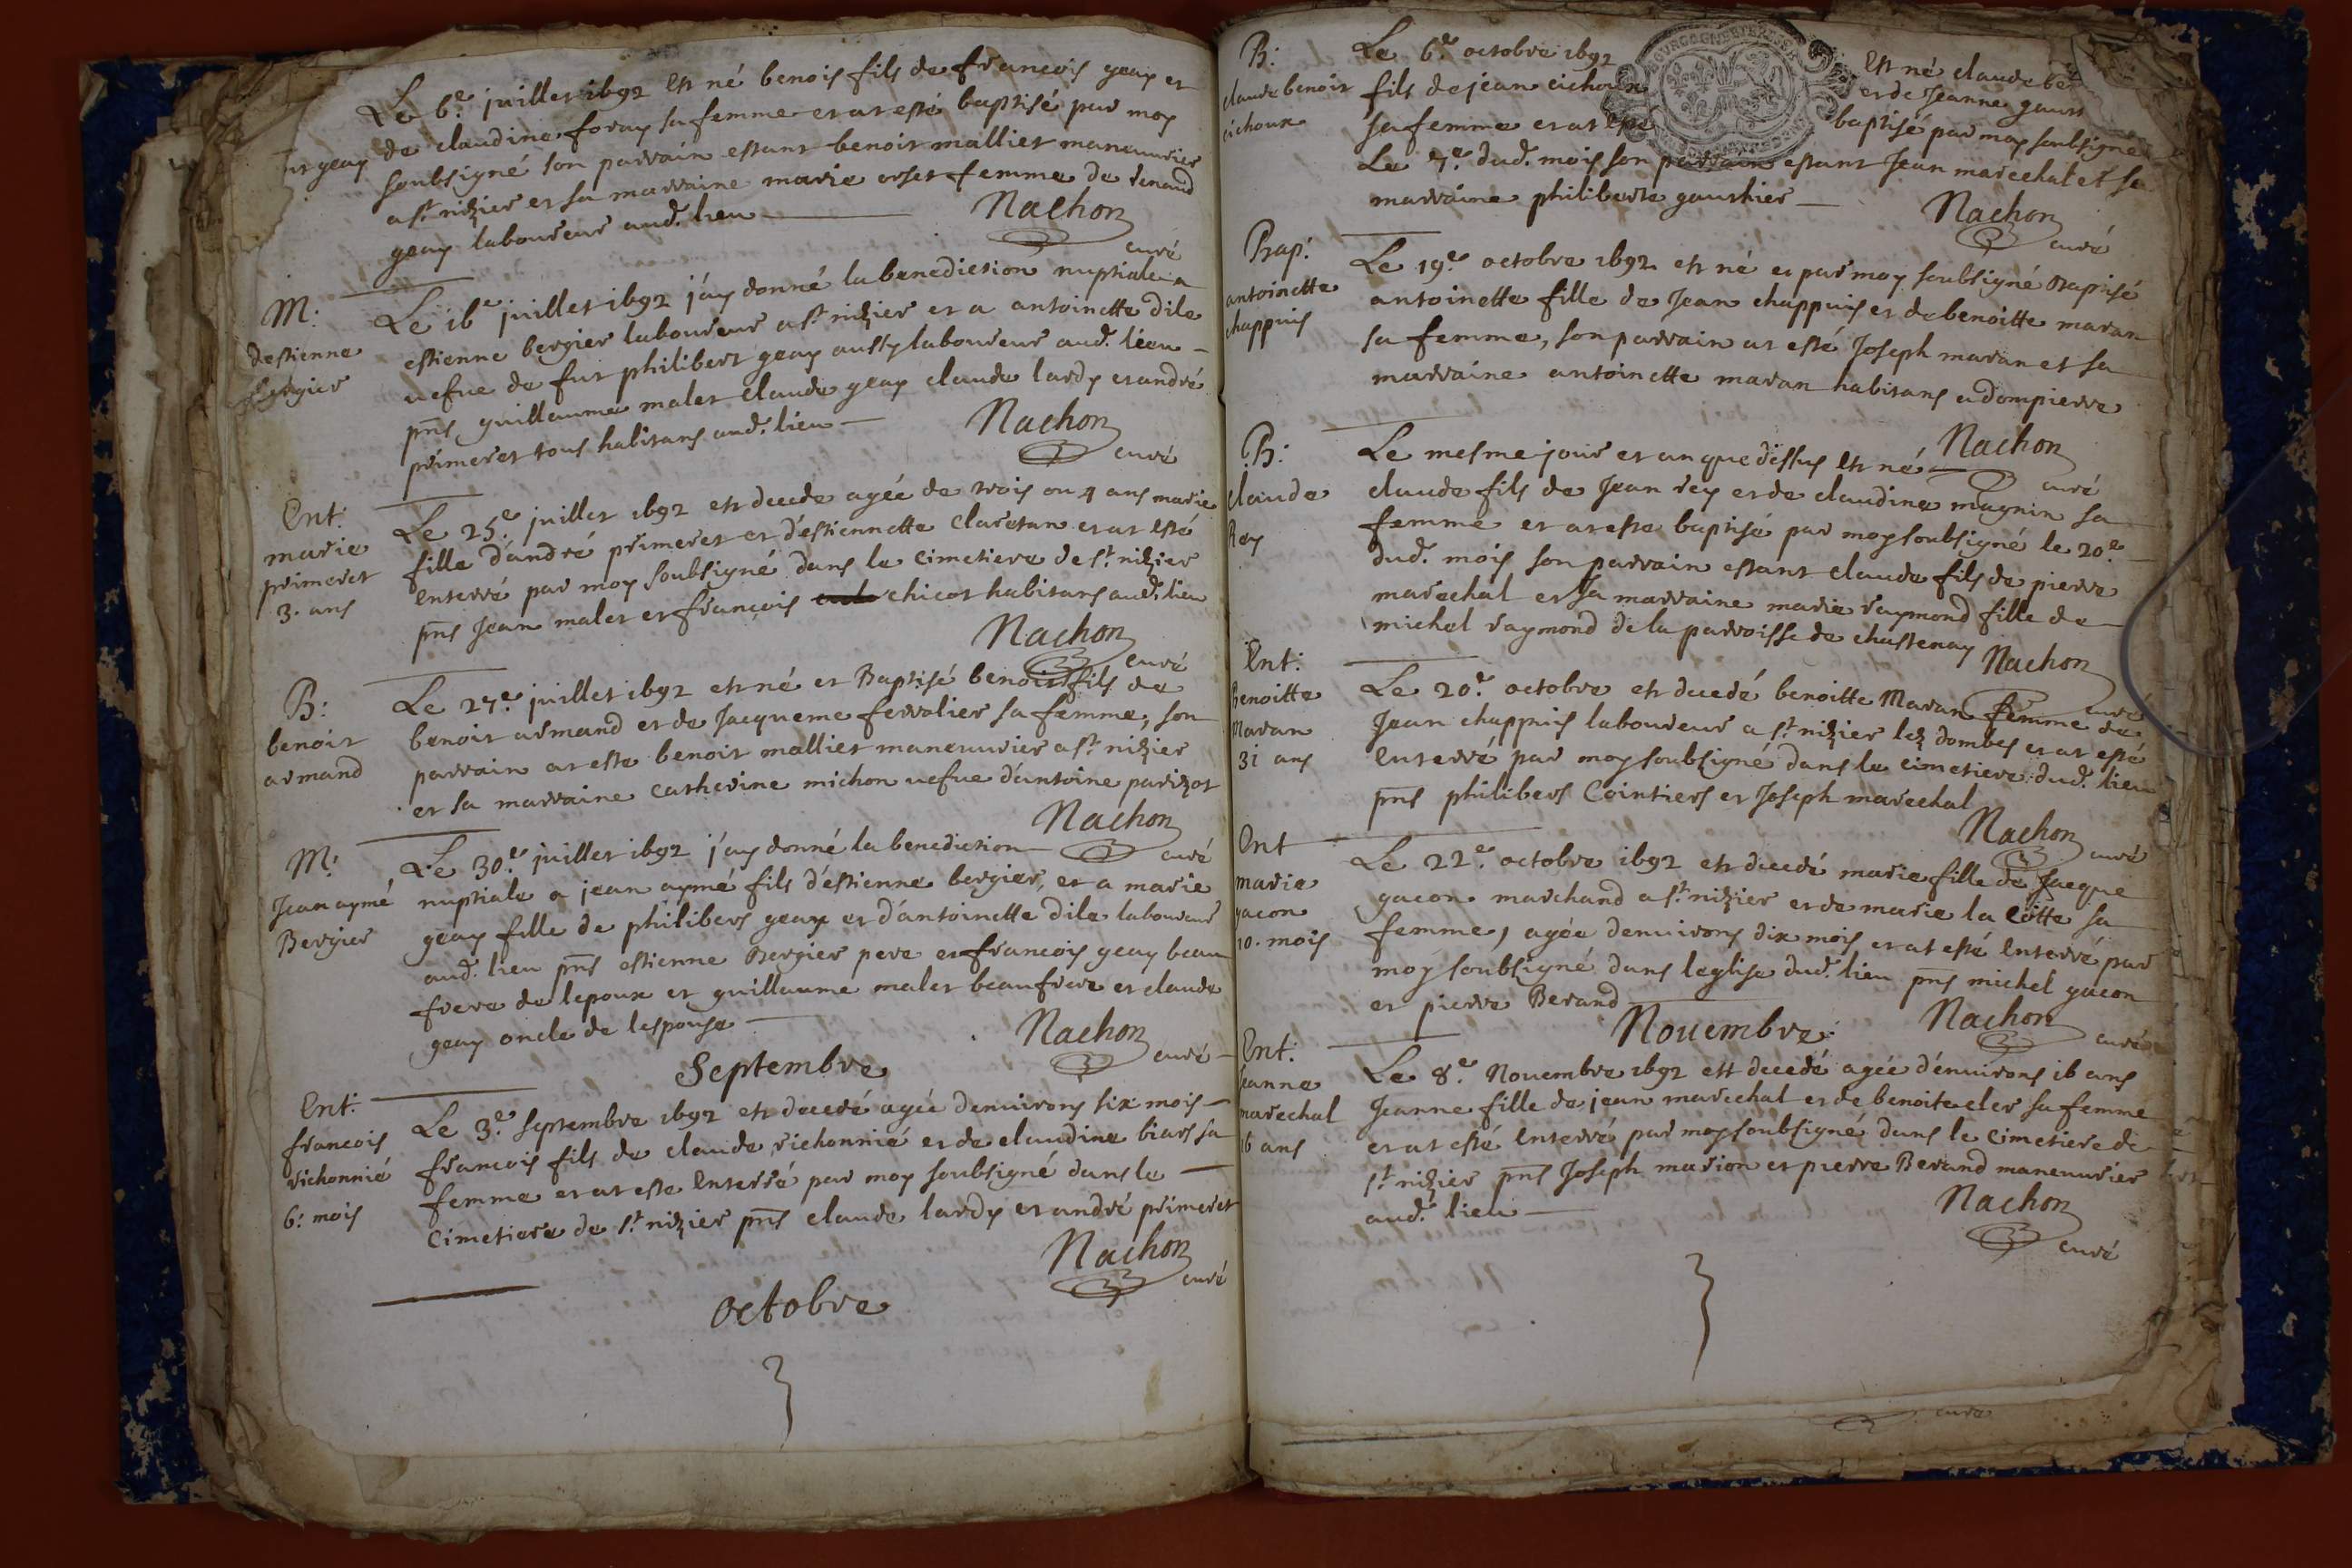 Le 6.e juillet 1692 est né benois fils de françois geay et
de claudine foray sa femme et at esté baptisé par moy
soubsigné son parrain estant benoit malliet maneuurier
a st nizier et sa marraine marie orset femme de renaud
geay laboureur aud. lieu
geay
Nachon
curé
M:
destienne
bergier
Le 16e juillet 1692 j'ay donné la benediction nuptiale a
estienne bergier laboureur a st nizier et a antoinette dile
uefue de fut philibert geay aussy laboureur aud. lieu
pnts guillaume malet claude geay claude lardy et andré
primeret tous habitans aud. lieu
Nachon
curé
Ent:
marie
primeret
3. ans
Le 25.e juillet 1692 est decede agée de trois ou 4 ans marie
fille d'andré primeret et d'estiennette claretan et at esté
enterré par moy soubsigné dans le cimetiere de st nizier
pnts Jean malet et françois chicot habitans aud. lieu
Nachon
curé
B:
benoit
armand
Le 27.e juillet 1692 est né et Baptisé benoist fils de
benoit armand et de Jacqueme ferrolier sa femme, son
parrain at este benoit malliet maneuurier a st nizier
et sa marraine catherine michon uefue d'antoine parizot
Nachon
curé
M:
Jean aymé
Bergier
Le 30.e juillet 1692 j'ay donné la benediction
nuptiale a jean aymé fils d'estienne bergier, et a marie
geay fille de philibers geay et d'antoinette dile laboureur
aud. lieu pnts estienne Bergier pere et françois geay beau
frere de lepoux et guillaume malet beaufrere et claude
geay oncle de lespouse
Nachon
curé
Septembre
Ent:
françois
richonnié
6: mois
Le 3.e septembre 1692 est decedé agée denuirons six mois
françois fils de claude richonnié et de claudine biars sa
femme et at este enterré par moy soubsigné dans le
cimetiere de st nizier pnts claude lardy et andré primeret
Nachon
curé
octobre
B:
claude benoit
cichoux
Le 6e octobre 1692 Est né claude be
fils de jean cichoux et de Jeanne gaust
sa femme et at esté baptisé par moy soubsigné
Le 7.e dud. mois son parrain estant Jean marechal et sa
marraine philiberte gaurhier
Nachon
curé
Bap:
antoinette
chappuis
Le 19.e octobre 1692 est né et par moy soubsigné Baptisé
antoinette fille de Jean chappuis et de benoitte maran
sa femme, son parrain at esté Joseph maran et sa
marraine antoinette maran habitans a dompierre
Nachon
curé
B:
claude
Rey
Le mesme jour et an que dessus est né
claude fils de Jean rey et de claudine magnin sa
femme et at este baptisé par moy soubsigné le 20.e
dud. mois son parrain estant claude fils de pierre
marechal et sa marraine marie raymond fille de
michel raymond de la parroisse de chastenay
Nachon
curé
Ent:
Benoitte
Maran
31 ans
Le 20.e octobre est decedé benoitte Maran femme de
Jean chappuis laboureur a st nizier lez dombes et at esté
enterré par moy soubsigné dans le cimetiere dud. lieu
pnts philibers Cointiers et Joseph marechal
Nachon
curé
Ent
marie
gacon
10. mois
Le 22.e octobre 1692 est decedé marie fille de Jacque
gacon marchand a st nizier et de marie la cotte sa
femme, agée denuirons dix mois et at esté enterré par
moy soubsigné dans leglise dud. lieu pnts michel gacon
et pierre Berand
Nachon
curé
Nouembre
Ent:
Jeanne
marechal
16 ans
Le 8.e Nouembre 1692 est decedé agée d'enuirons 16 ans
Jeanne fille de jean marechal et de benoite cler sa femme
et at esté enterré par moy soubsigné dans le cimetiere de
st nizier pnts Joseph marion et pierre Berand maneuurier
aud. lieu
Nachon
curé
curé